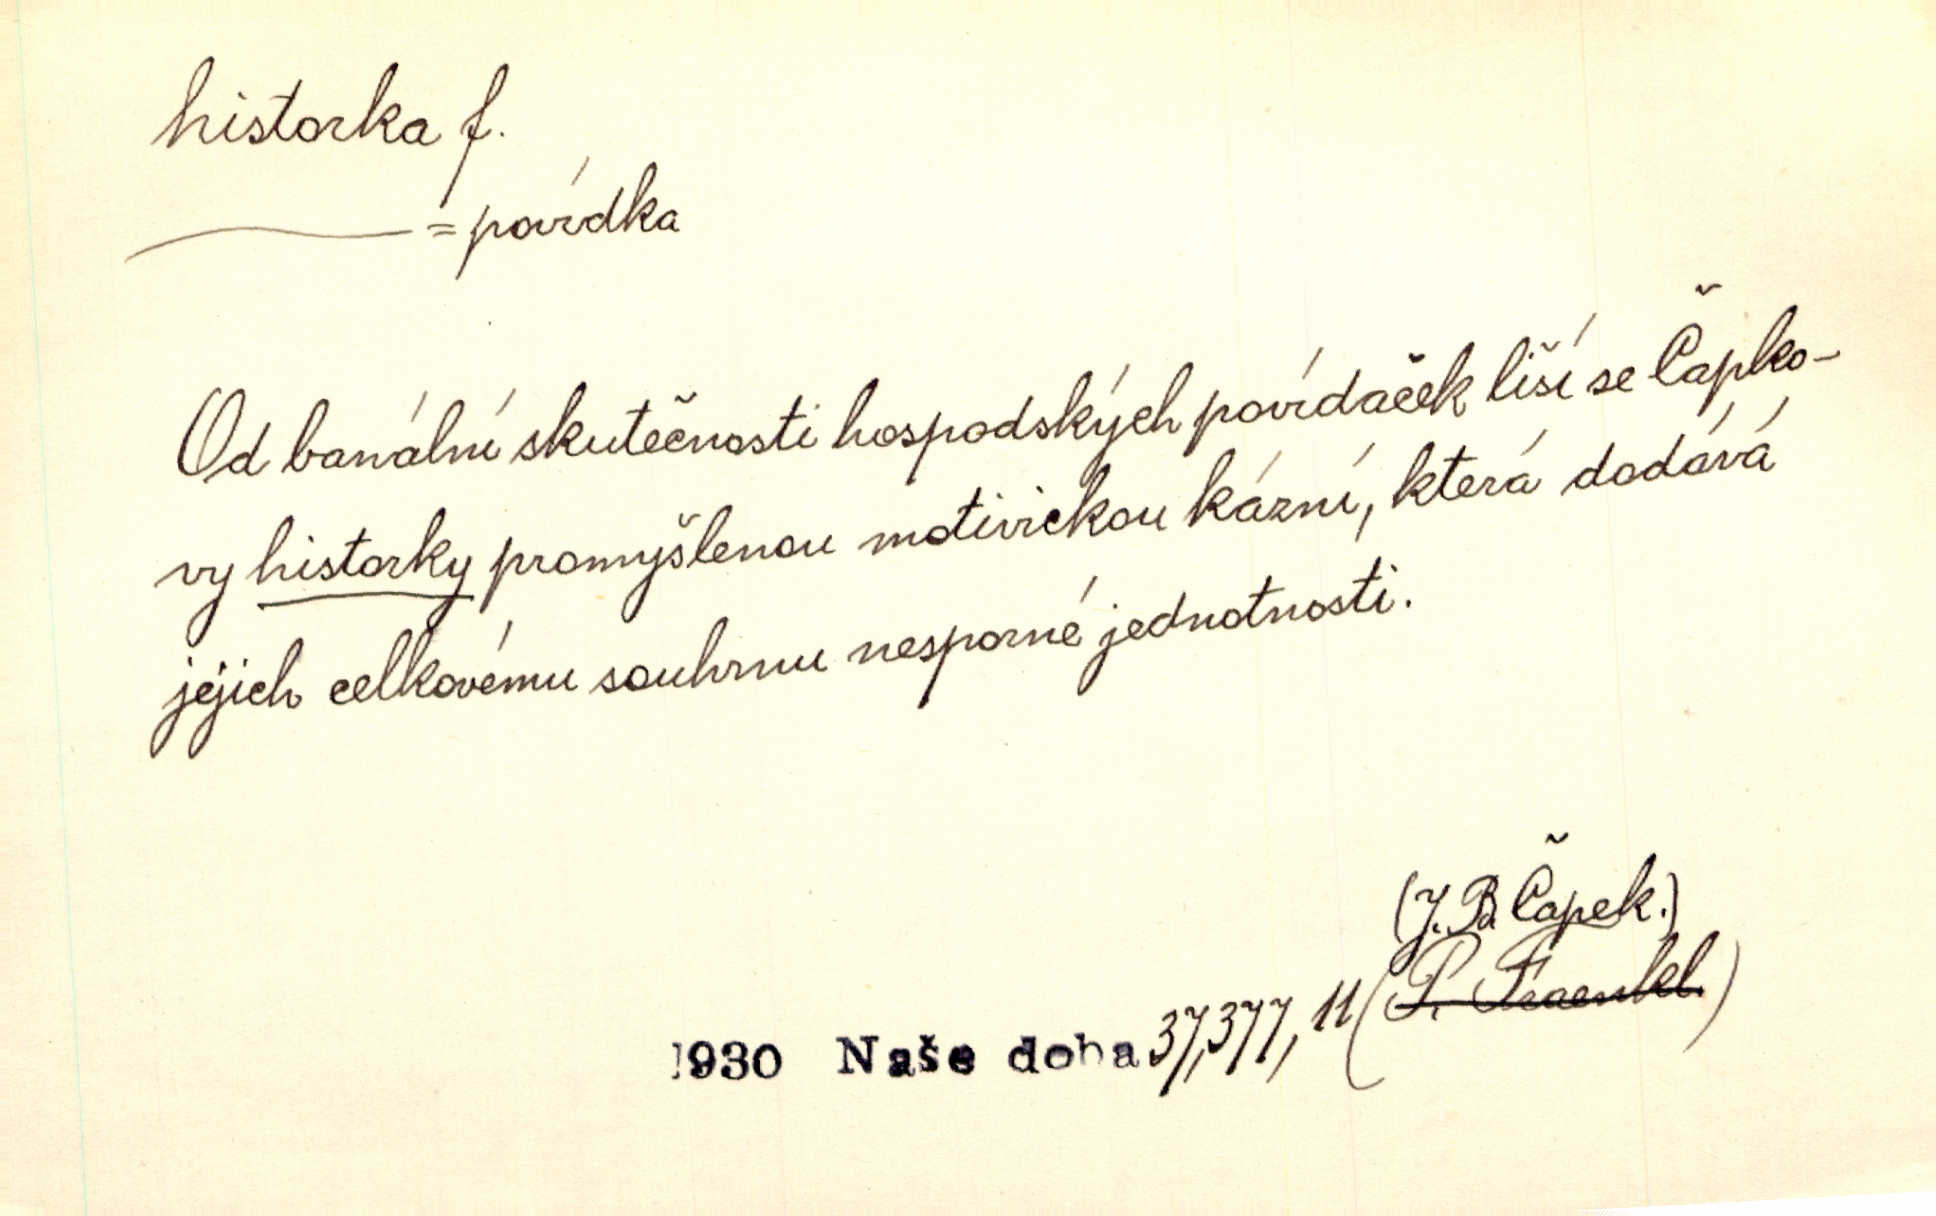 historka f.
= povídka
Od banální skutečnosti hospodských povídaček liší se Čapko-
vy historky promyšlenou motivickou kázní, která dodává
jejich celkovému souhrnu nesporné jednotnosti.
(J. B. Čapek.)
1930 Naše doba 37, 377, 11 (P. Fraenkl.)